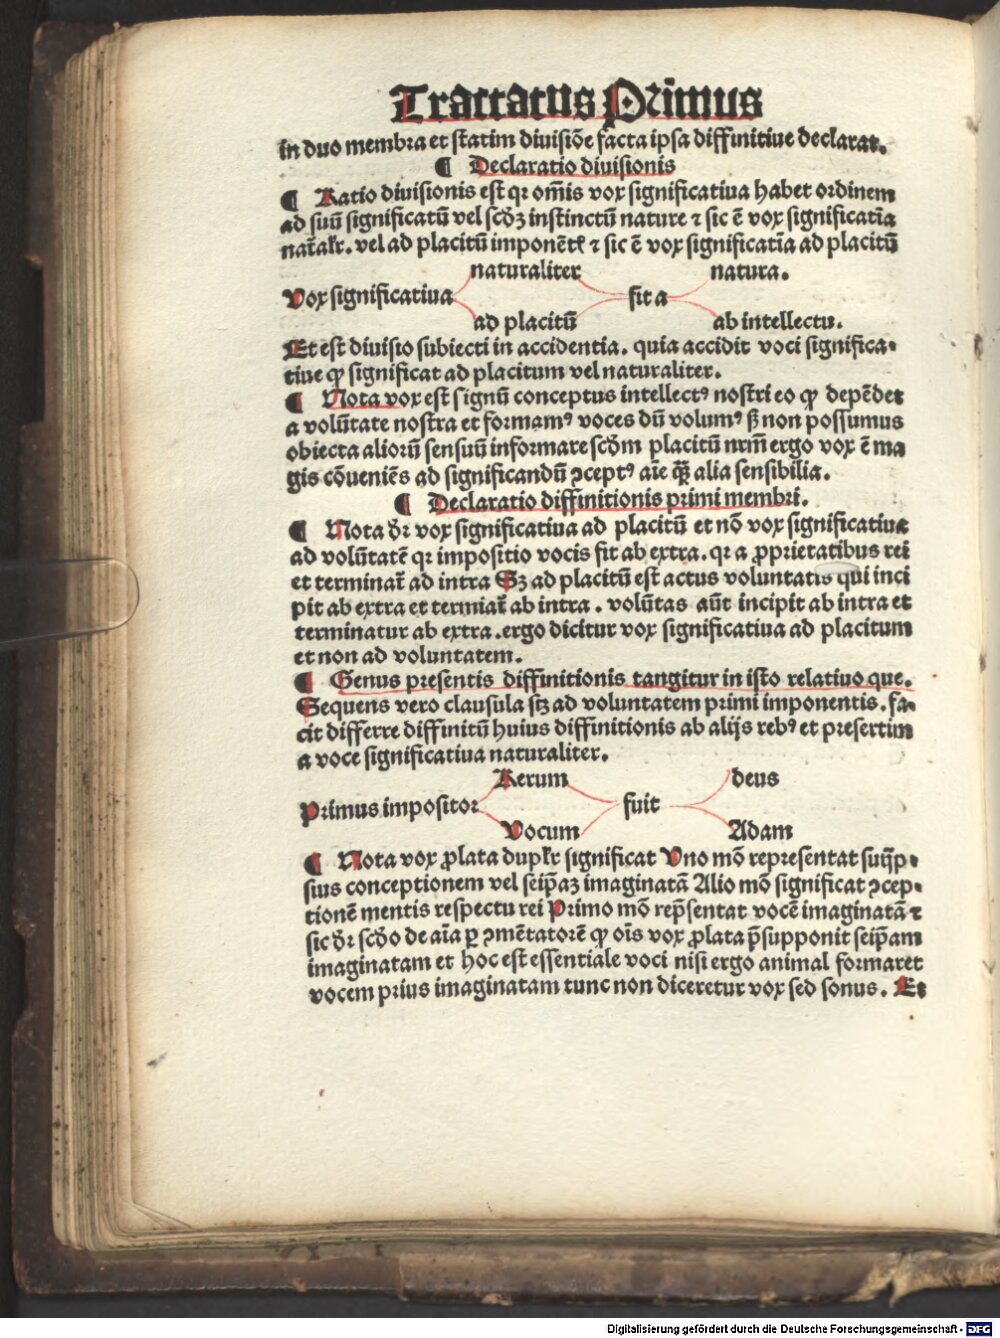 Tractatus Primus
in duo membra et statim diuisiōe facta ipsa diffinitiue declarat.
¶ Declaratio diuisionis
¶ Ratio diuisionis est qꝛ om̄is vox significatiua habet ordinem
ad suū significatū vel scd̄ꝫ instinctū nature ⁊ sic ē vox significatīa
nat̄alr̄. vel ad placitū imponētꝭ ⁊ sic ē vox significatīa ad placitū
naturaliter natura.
Vox significatiua fit a
ad placitū ab intellectu.
Et est diuisio subiecti in accidentia. quia accidit voci significa-
tiue ꝙ significat ad placitum vel naturaliter.
¶ Nota vox est signū conceptus intellectꝰ nostri eo ꝙ depēdet
a volūtate nostra et formamꝰ voces dū volumꝰ sꝫ non possumus
obiecta aliorū sensuū informare scd̄m placitū nr̄m ergo vox ē ma
gis cōueniēs ad significandū ꝯceptꝰ aīe qꝫ̄ alia sensibilia.
¶ Declaratio diffinitionis primi membri.
¶ Nota dr̄ vox significatiua ad placitū et nō vox significatiua
ad volūtatē qꝛ impositio vocis fit ab extra. qꝛ a ꝓprietatibus rei
et terminat̄ ad intra Sꝫ ad placitū est actus voluntatis qui inci
pit ab extra et termiat̄ ab intra. volūtas aūt incipit ab intra et
terminatur ab extra. ergo dicitur vox significatiua ad placitum
et non ad voluntatem.
¶ Genus presentis diffinitionis tangitur in isto relatiuo que.
Sequens vero clausula sꝫ ad voluntatem primi imponentis. fa-
cit differre diffinitū huius diffinitionis ab alijs rebꝰ et presertim
a voce significatiua naturaliter.
Rerum deus
Primus impositor fuit
Vocum Adam
¶ Nota vox ꝓlata duplr̄ significat Vno mō representat suijp-
sius conceptionem vel seip̄aꝫ imaginatā Alio mō significat ꝯcep-
tionē mentis respectu rei Primo mō rep̄sentat vocē imaginatā ⁊
sic dr̄ scd̄o de aīa ꝑ ꝯmētatorē ꝙ oīs vox ꝓlata p̄supponit seip̄am
imaginatam et hoc est essentiale voci nisi ergo animal formaret
vocem prius imaginatam tunc non diceretur vox sed sonus. Et
Digitalisierung gefördert durch die Deutsche Forschungsgemeinschaft - DFG